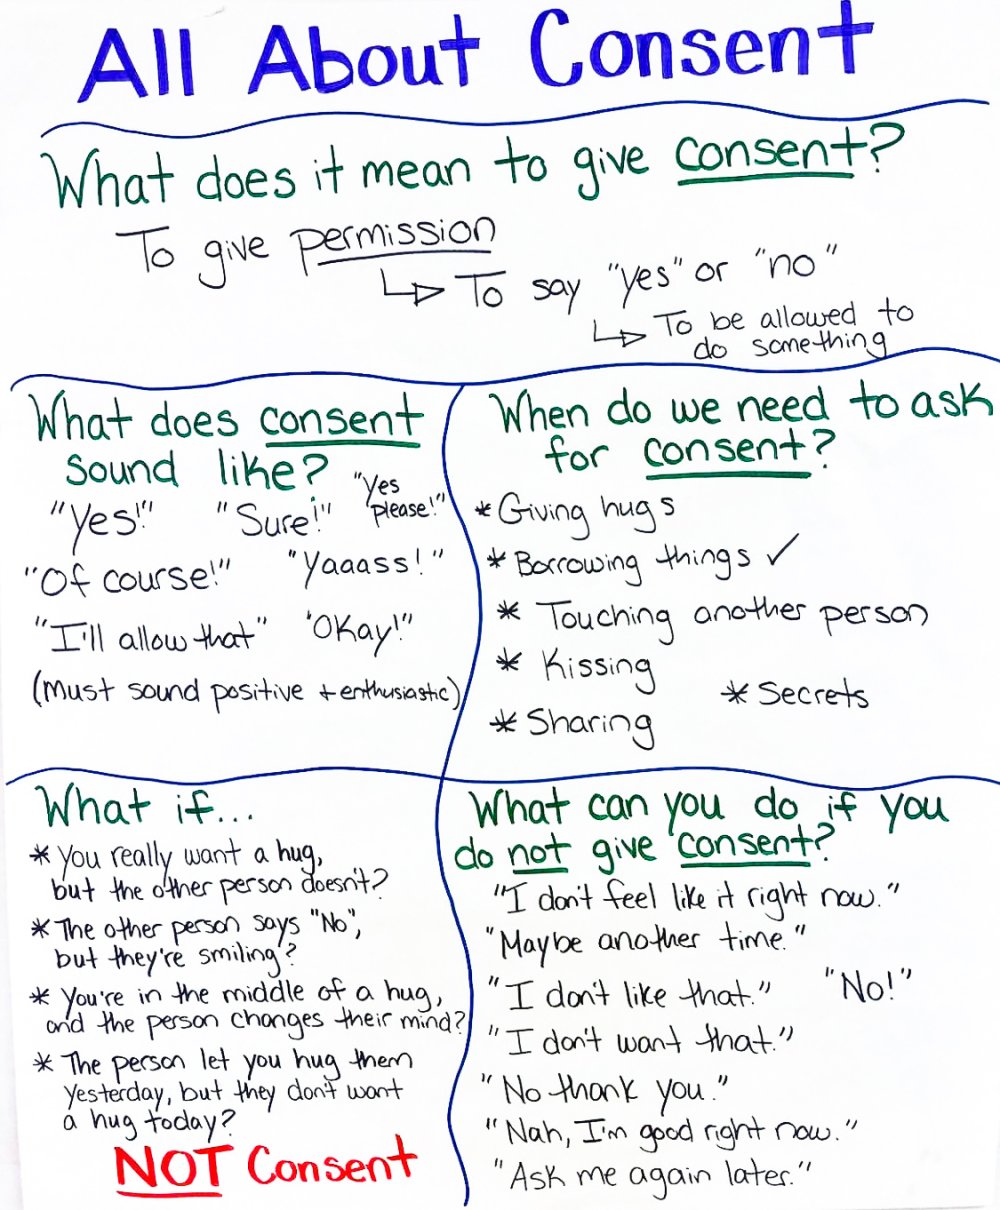 All About Consent
What does it mean to give consent?
To give permission
To say "yes" or "no"
To be allowed to
do something
What does consent
sound like?
"Yes!" "Sure!" "Yes
please!"
"Of course!" "Yaaass!"
"I'll allow that" "Okay!"
(Must sound positive + enthusiastic)
When do we need to ask
for consent?
* Giving hugs
* Borrowing things ✓
* Touching another person
* Kissing
* Secrets
* Sharing
What if...
* You really want a hug,
but the other person doesn't?
* The other person says "No",
but they're smiling?
* You're in the middle of a hug,
and the person changes their mind?
* The person let you hug them
yesterday, but they don't want
a hug today?
NOT Consent
What can you do if you
do not give consent?
"I don't feel like it right now."
"Maybe another time."
"I don't like that." "No!"
"I don't want that."
"No thank you."
"Nah, I'm good right now."
"Ask me again later."